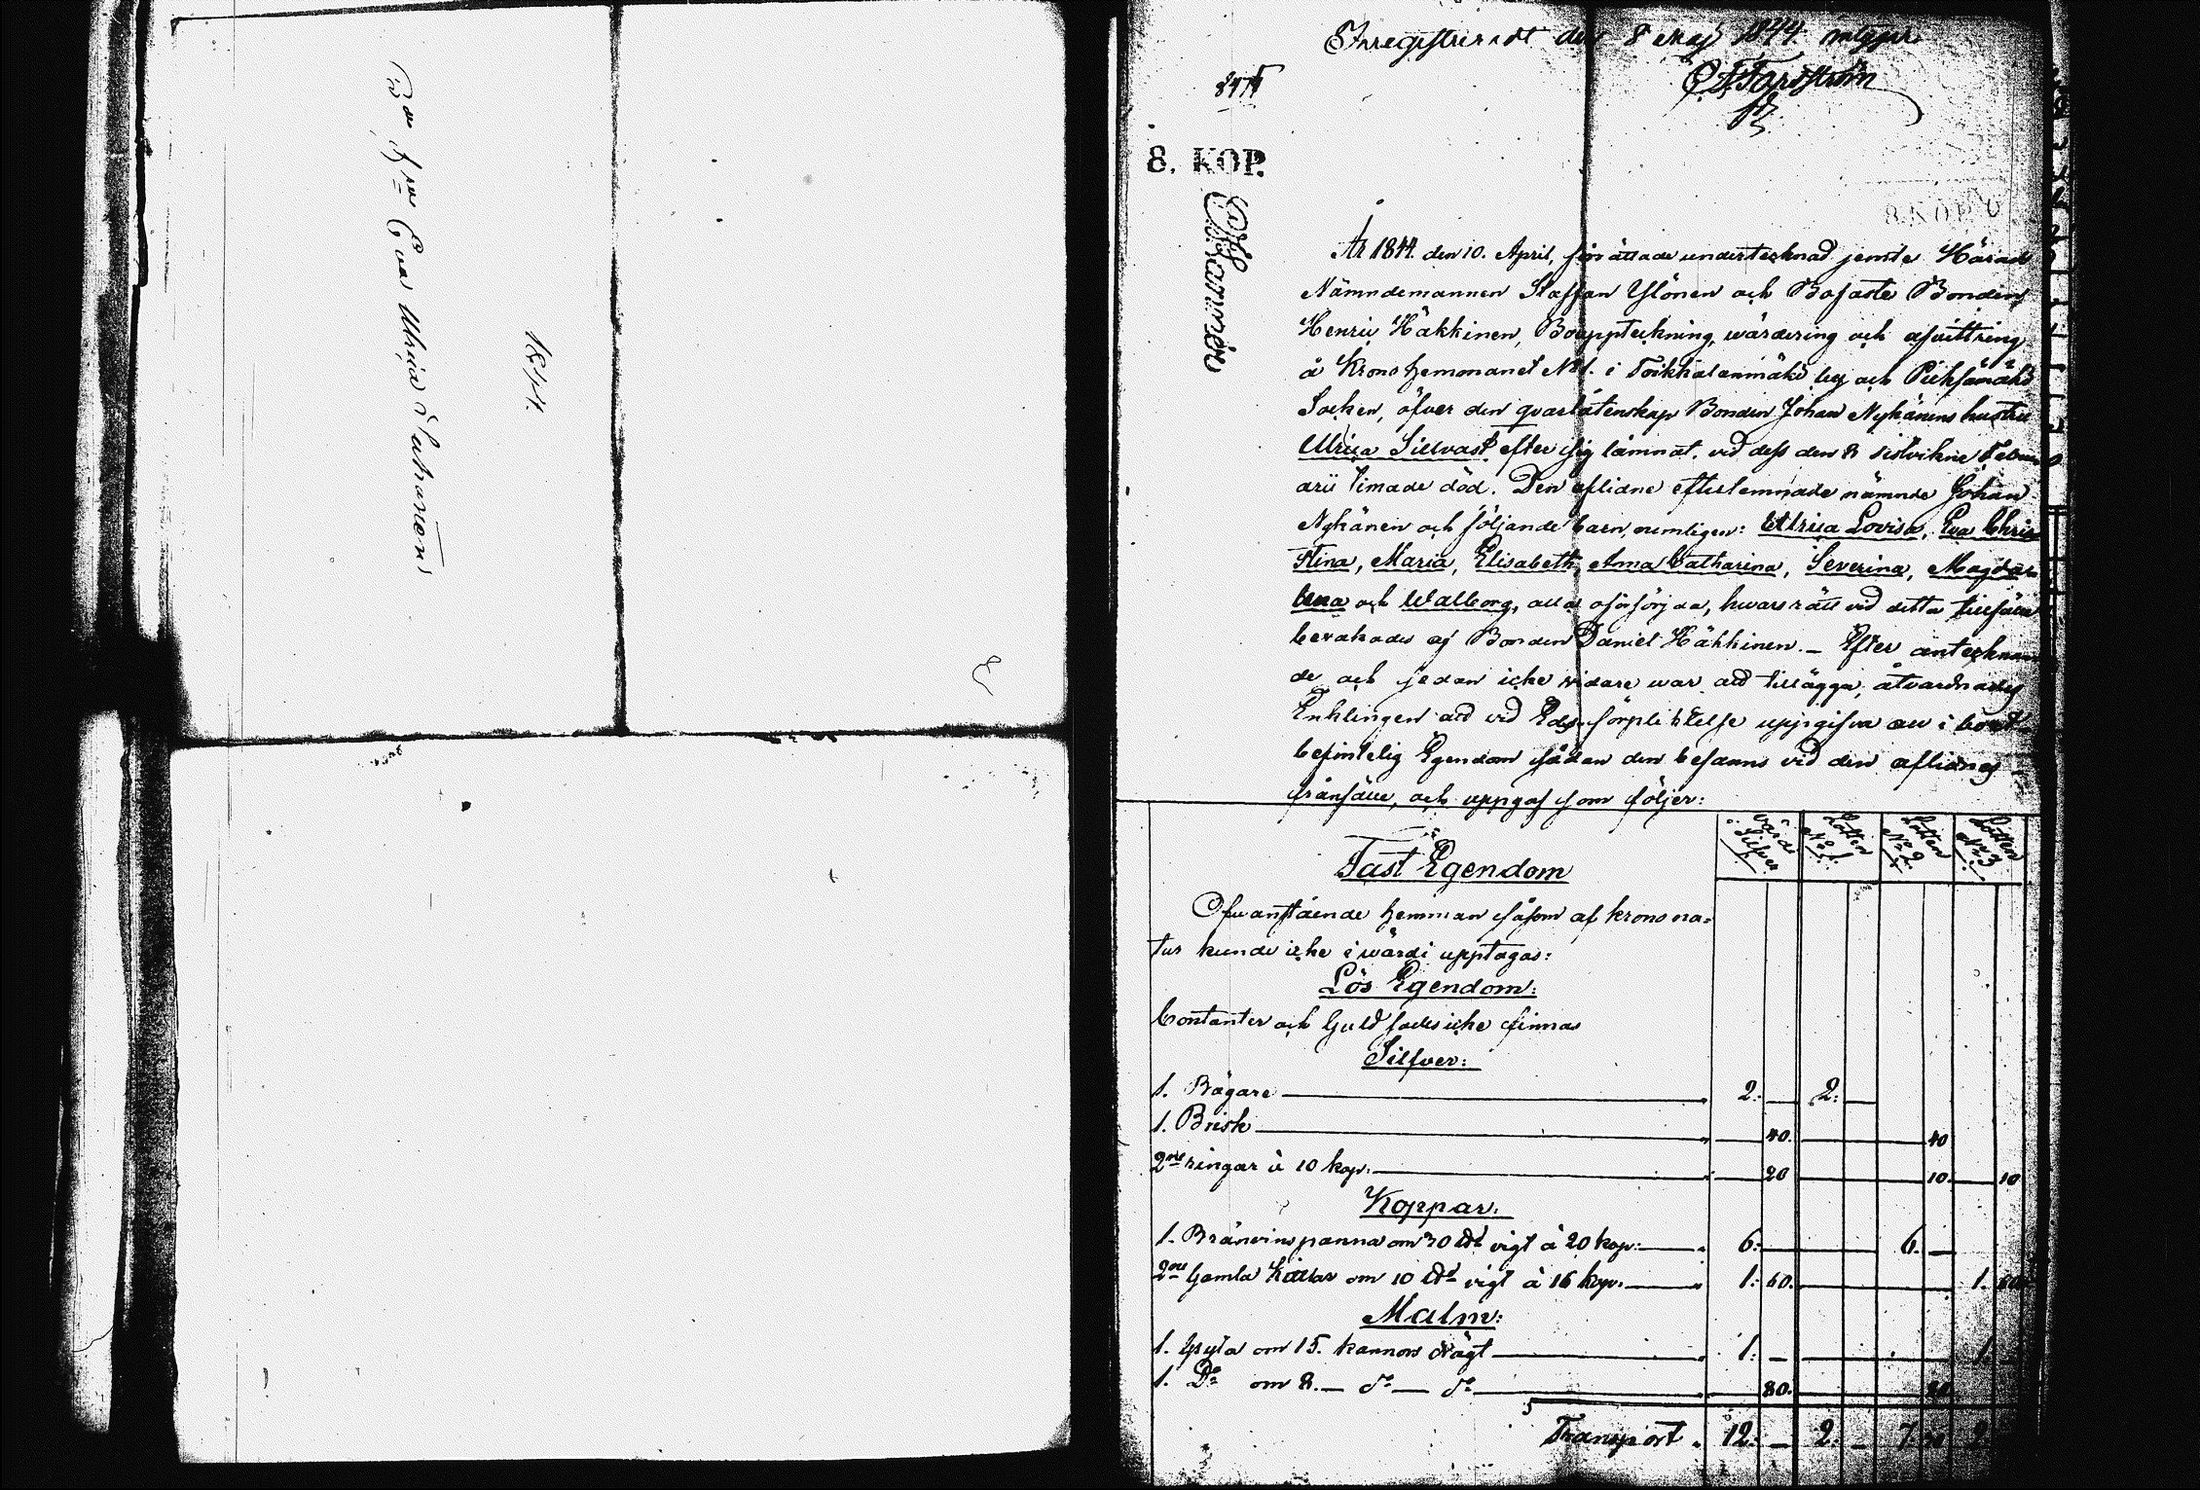 Bo fr Eva Ulrica Suhonen
1844.
Inregistreradt den 8 Maj 1844, intygar
C F Forsström
8. KOP.
8. KOP.
År 1844 den 10. April, förrättade undertecknad jemte Härads
Nämndemannen Staffan Ylönen och Bofaste Bonden
Henric Häkkinen, Bouppteckning, wärdering och afvittring
å Krono hemmanet No 1. i Toikkalanmäki by och Pieksämäki
Socken, öfver den qvarlåtenskap Bonden Johan Nykänens hustru
Ulrica Sillvast efter sig lämnat, vid dess den 8 sistvikne Febru
arii timade död. Den aflidne efterlemnade nämnde Johan
Nykänen och följande barn, nemligen: Ulrica Lovisa, Eva Chris
tina, Maria, Elisabeth, Anna Catharina, Severina, Magda
lena och Walborg, alla oförsörjda, hwars rätt vid detta tillfälle
bevakades af Bonden Daniel Häkkinen. — Efter antecknan
de och sedan icke vidare war att tillägga, åtvarnades
Enklingen att vid Eds förpliktelse uppgifva all i boet
befintelig Egendom sådan den befanns vid den aflidnes
frånfälle, och uppgaf som följer:
Värde i Silfver Lotten No 1. Lotten No 2. Lotten No 3.
Fast Egendom
Ofvanstående hemman såsom af krono na=
tur kunde icke i wärde upptagas:
Lös Egendom:
Contanter och Guld sades icke finnas
Silfver:
1. Bägare 2: — 2: —
1. Brisk 40. 40
2ne ringar à 10 kop: 20 10. 10
Koppar:
1. Bränvins panna om 30 ℔ vigt à 20 kop: 6: — 6: —
2ne Gamla Kittlar om 10 ℔ vigt à 16 kop. 1: 60. 1. 60
Malm:
1. Gryta om 15. kannors drägt 1: — 1.
1. Do om 8. — do — do 80. 80
Transport 12: — 2: — 7.